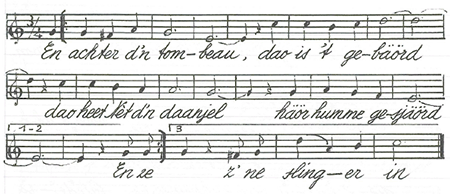 En achter d'n tom-beau, dao is 't ge-bäörd
dao heet Ket d'n daanjel häör humme ge-sjäörd
1-2 3
En ze z' ne sling-er in